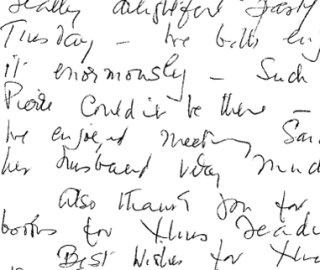 really delightful party
Tuesday - We both enj
it enormously - Such
Pierre Could be there -
We enjoyed meeting Sar
her husband very muc
Also thank you for
books for Xmas readi
Best Wishes for Xm